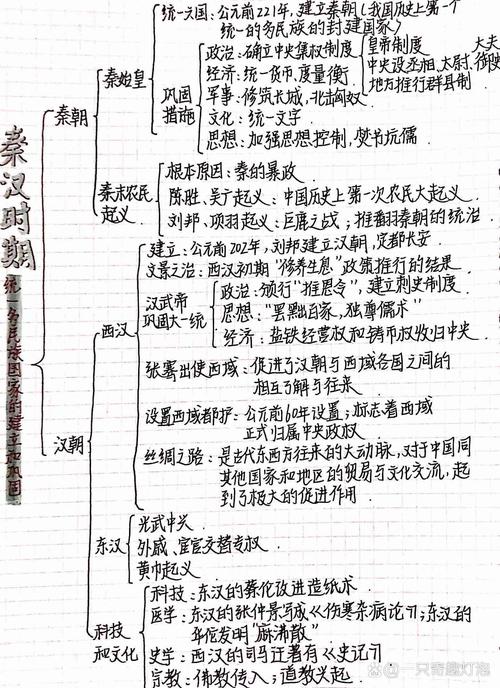 秦汉时期
统一多民族国家的建立和巩固
秦朝
秦始皇
统一六国:公元前221年,建立秦朝(我国历史上第一个
统一的多民族的封建国家)
巩固
措施
政治:确立中央集权制度
皇帝制度
中央设丞相、太尉、御史
大夫
地方推行郡县制
经济:统一货币、度量衡.
军事:修筑长城,北击匈奴
文化:统一文字
思想:加强思想控制,焚书坑儒
秦末农民
起义
根本原因:秦的暴政
陈胜、吴广起义:中国历史上第一次农民大起义
刘邦、项羽起义:巨鹿之战;推翻秦朝的统治
汉朝
西汉
建立:公元前202年,刘邦建立汉朝,定都长安
文景之治:西汉初期"修养生息"政策推行的结果.
汉武帝
巩固大一统
政治:颁行"推恩令",建立刺史制度.
思想:"罢黜百家,独尊儒术"
经济:盐铁经营权和铸币权收归中央.
张骞出使西域:促进了汉朝与西域各国之间的
相互了解与往来
设置西域都护:公元前60年设置;标志着西域
正式归属中央政权
丝绸之路:是古代东西方往来的大动脉,对于中国同
其他国家和地区的贸易与文化交流,起
到了极大的促进作用.
东汉
光武中兴
外戚、宦官交替专权.
黄巾起义
科技
和文化
科技:东汉的蔡伦改进造纸术
医学:东汉的张仲景写成《伤寒杂病论》;东汉的
华佗发明"麻沸散"
史学:西汉的司马迁著有《史记》
宗教:佛教传入;道教兴起.
一只奇趣灯泡